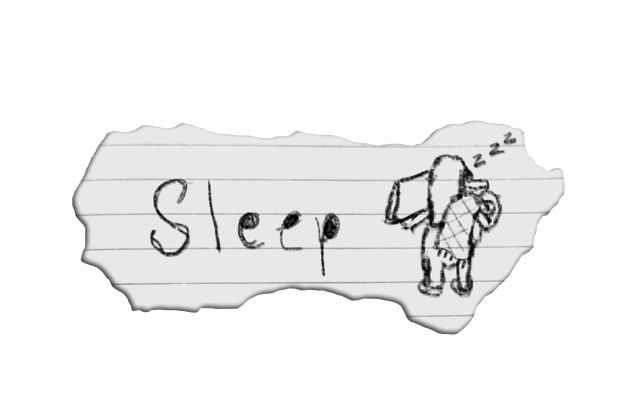 Sleep
z z z